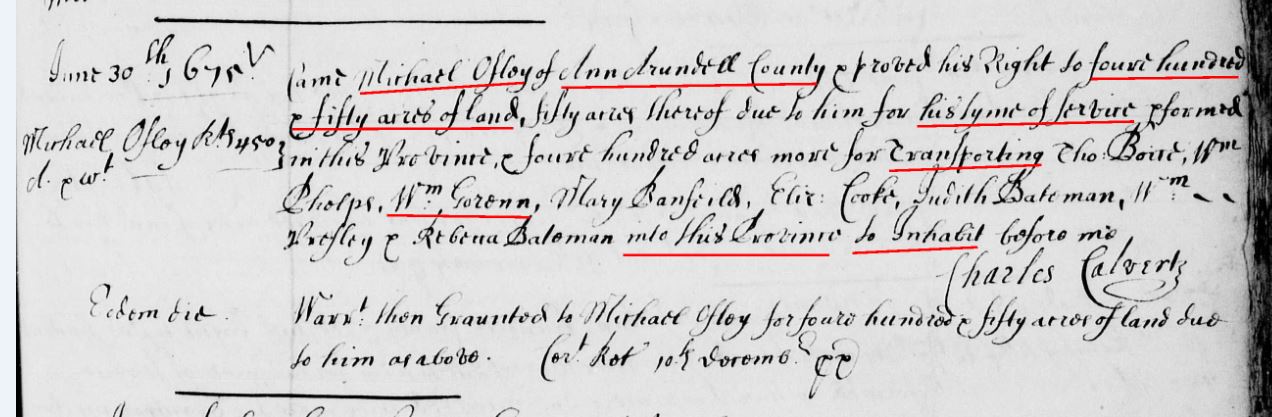 June 30th 1675
Came Michael Ofley of Ann Arundell County & proved his Right to foure hundred
& fifty acres of land, fifty acres thereof due to him for his tyme of service pformed
Michael Ofley Rts 450
in this Province, & foure hundred acres more for Transporting Tho: Boice, Wm
d. p wt
Phelps, Wm Gorenn, Mary Banfeild, Eliz: Cooke, Judith Bateman, Wm
Presley & Rebecca Bateman into this Province to Inhabit before me
Charles Calvert
Eodem die
Warrt then Graunted to Michael Ofley for foure hundred & fifty acres of land due
to him as above. Cert Ret 10th Decembr